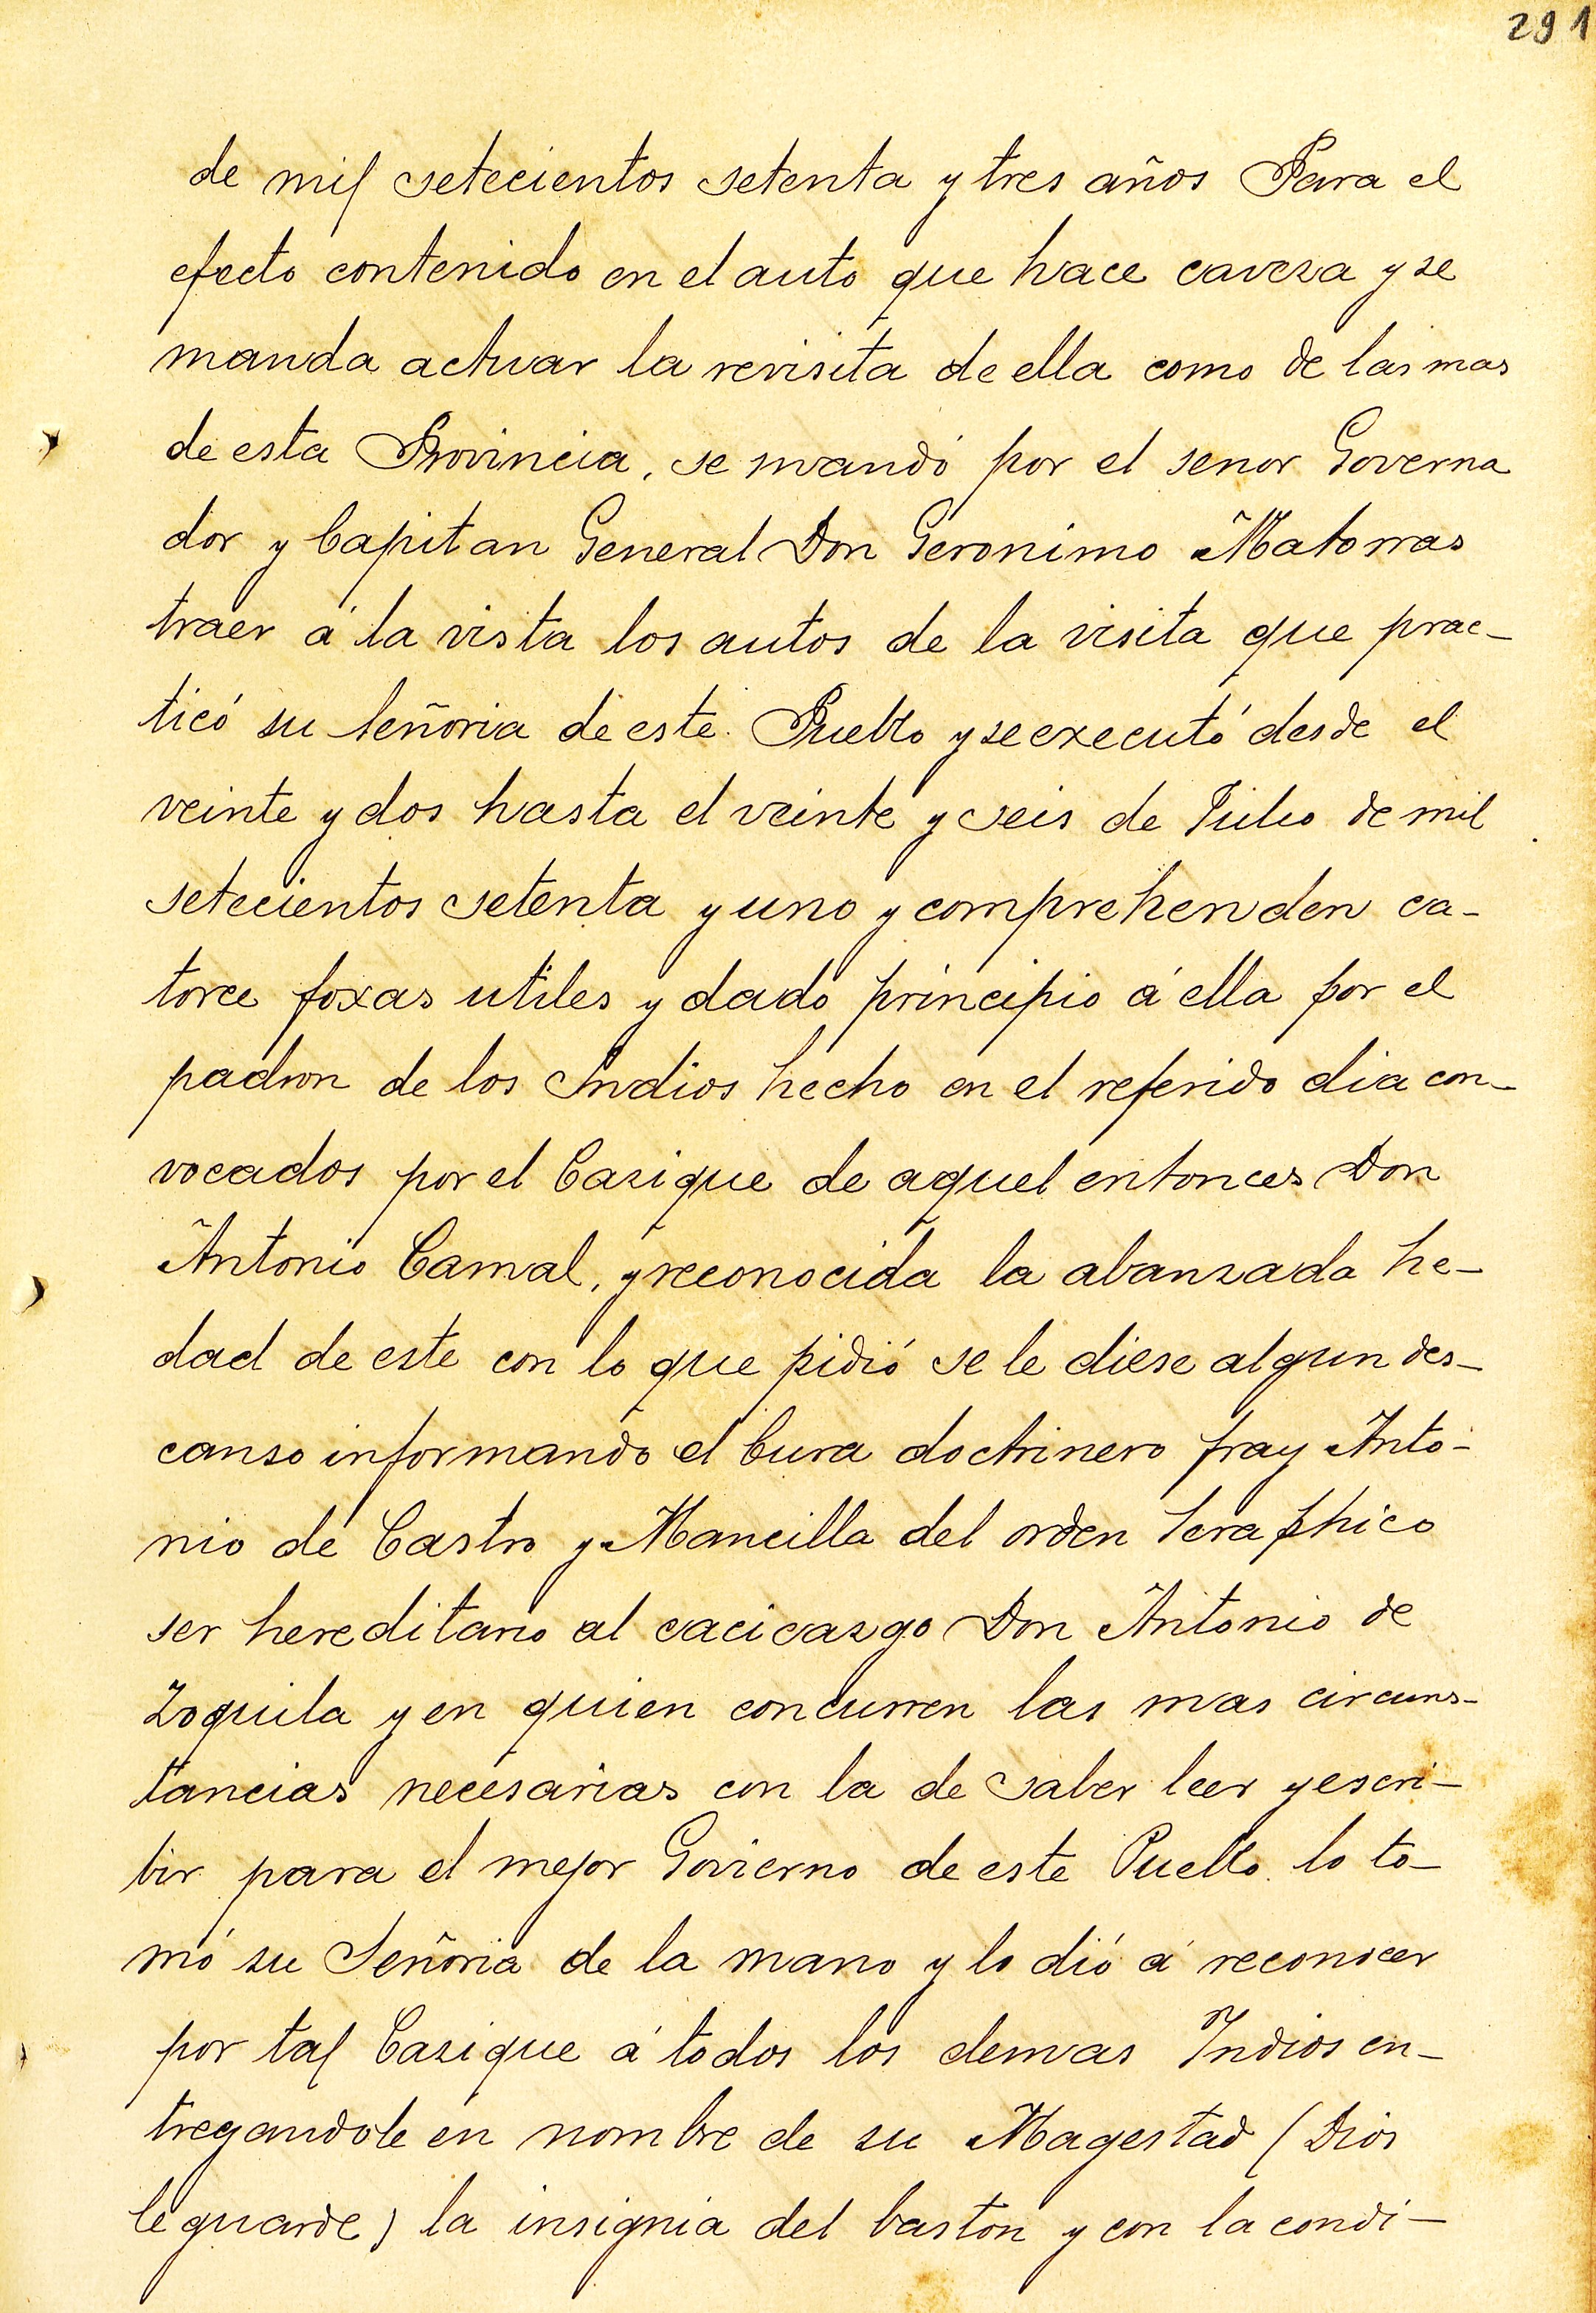 291
de mil setecientos setenta y tres años Para el
efecto contenido en el auto que hace caveza y se
manda actuar la revisita de ella como de las mas
de esta Provincia, se mandó por el senor Governa
dor y Capitan General Don Geronimo Matorras
traer á la vista los autos de la visita que prac-
ticó su Señoria de este Pueblo y se executó desde el
veinte y dos hasta el veinte y seis de Julio de mil
setecientos setenta y uno y comprehenden ca-
torce foxas utiles y dado principio á ella por el
padron de los Indios hecho en el referido dia con-
vocados por el Casique de aquel entonces Don
Antonio Camal, y reconocida la abanzada he-
dad de este con lo que pidió se le diese algun des-
canso informando el Cura doctrinero fray Anto-
nio de Castro y Mancilla del orden Seraphico
ser hereditario al cacicazgo Don Antonio de
Zoquila y en quien concurren las mas circuns-
tancias necesarias con la de saber leer y escri-
bir para el mejor Govierno de este Pueblo lo to-
mó su Señoria de la mano y lo dió á reconocer
por tal Casique á todos los demas Indios en-
tregandole en nombre de su Magestad (Dios
le guarde) la insignia del baston y con la condi-